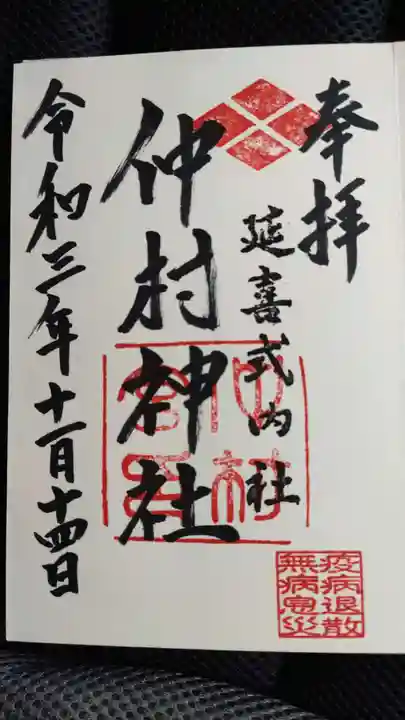 奉拝
延喜式内社
仲村神社
令和三年十一月十四日
疫病退散
無病息災